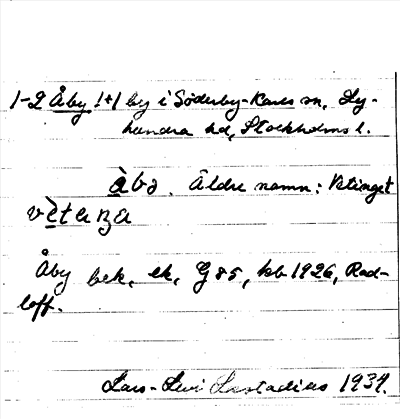 1-2 Åby 1+1 by i Söderby-Karls sn, Ly-
hundra hd, Stockholms l.
åbə. Äldre namn: Vetinget
vètaŋa
Åby bek, ek, G 85, kb 1926, Rad-
loff.
Lars-Levi Læstadius 1934.